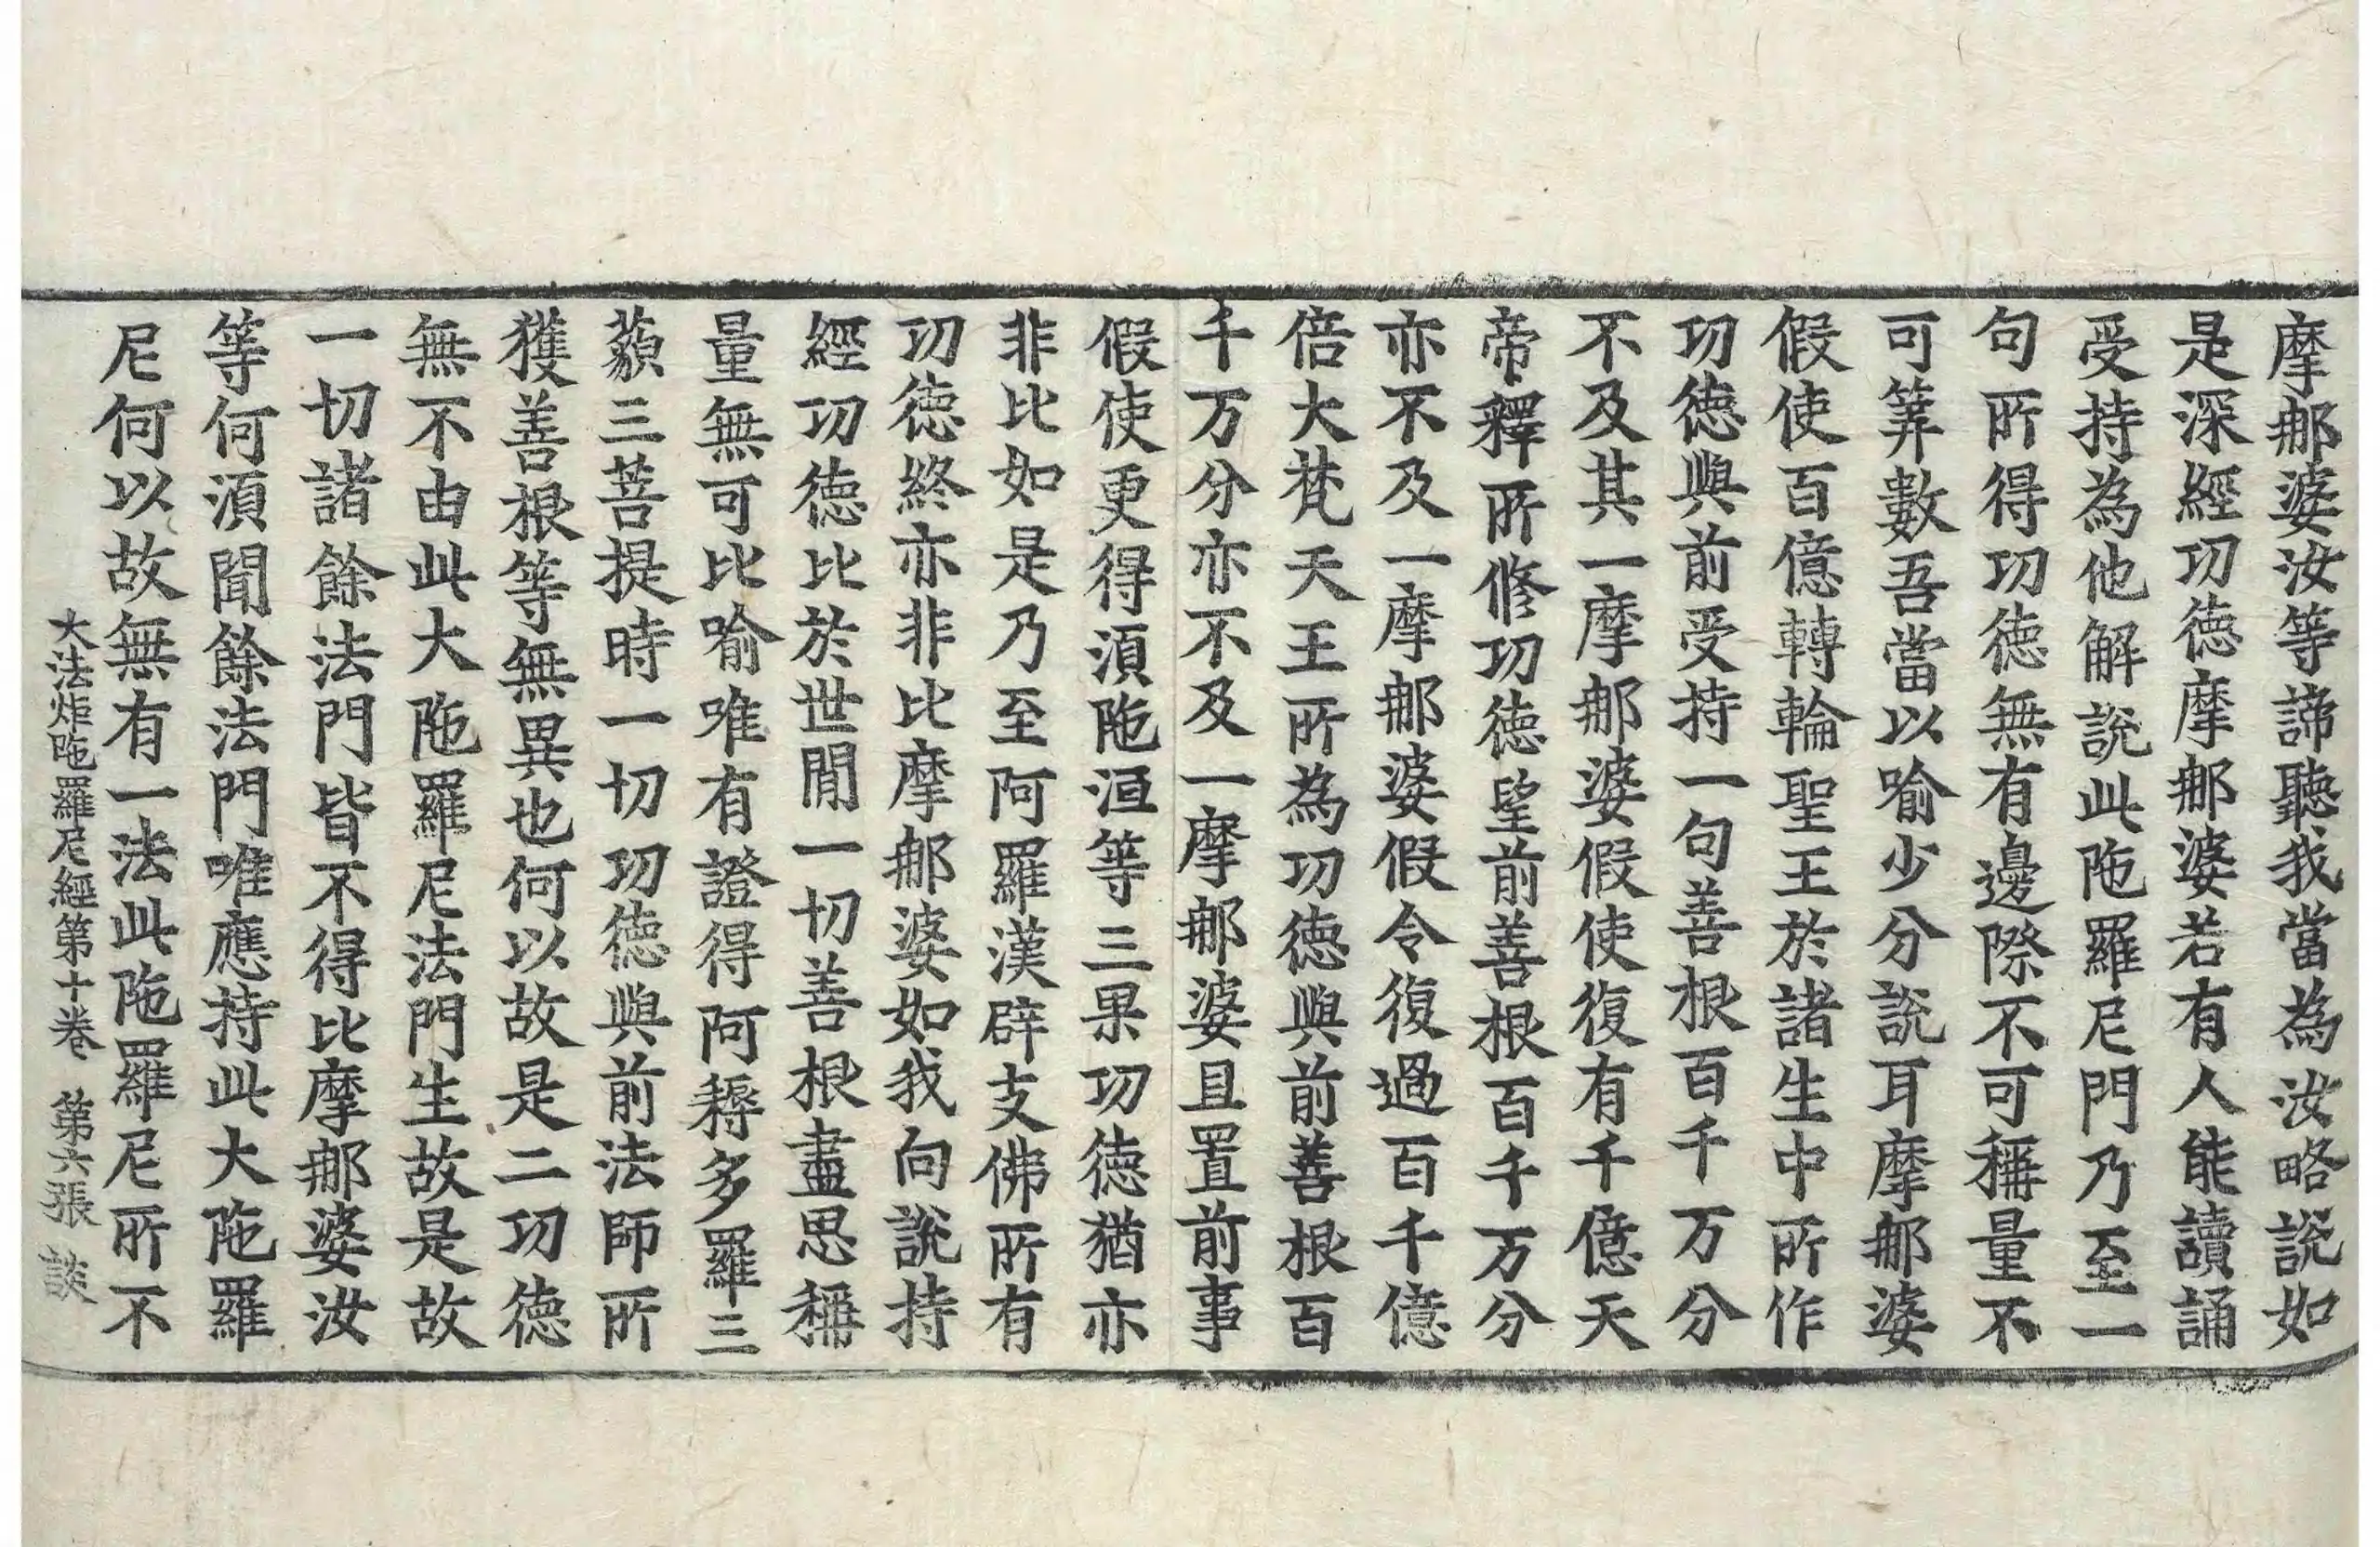 摩那婆汝等諦聽我當為汝略說如
是深經功德摩那婆若有人能讀誦
受持為他解說此陁羅尼門乃至一
句所得功德無有邊際不可稱量不
可筭數吾當以喻少分說耳摩那婆
假使百億轉輪聖王於諸生中所作
功德與前受持一句善根百千万分
不及其一摩那婆假使復有千億天
帝釋所修功德望前善根百千万分
亦不及一摩那婆假令復過百千億
倍大梵天王所為功德與前善根百
千万分亦不及一摩那婆且置前事
假使更得須陁洹等三果功德猶亦
非比如是乃至阿羅漢辟支佛所有
功德終亦非比摩那婆如我向說持
經功德比於世間一切善根盡思稱
量無可比喻唯有證得阿耨多羅三
藐三菩提時一切功德與前法師所
獲善根等無異也何以故是二功德
無不由此大陁羅尼法門生故是故
一切諸餘法門皆不得比摩那婆汝
等何須聞餘法門唯應持此大陁羅
尼何以故無有一法此陁羅尼所不
大法炬陁羅尼經第十卷 第六張 談